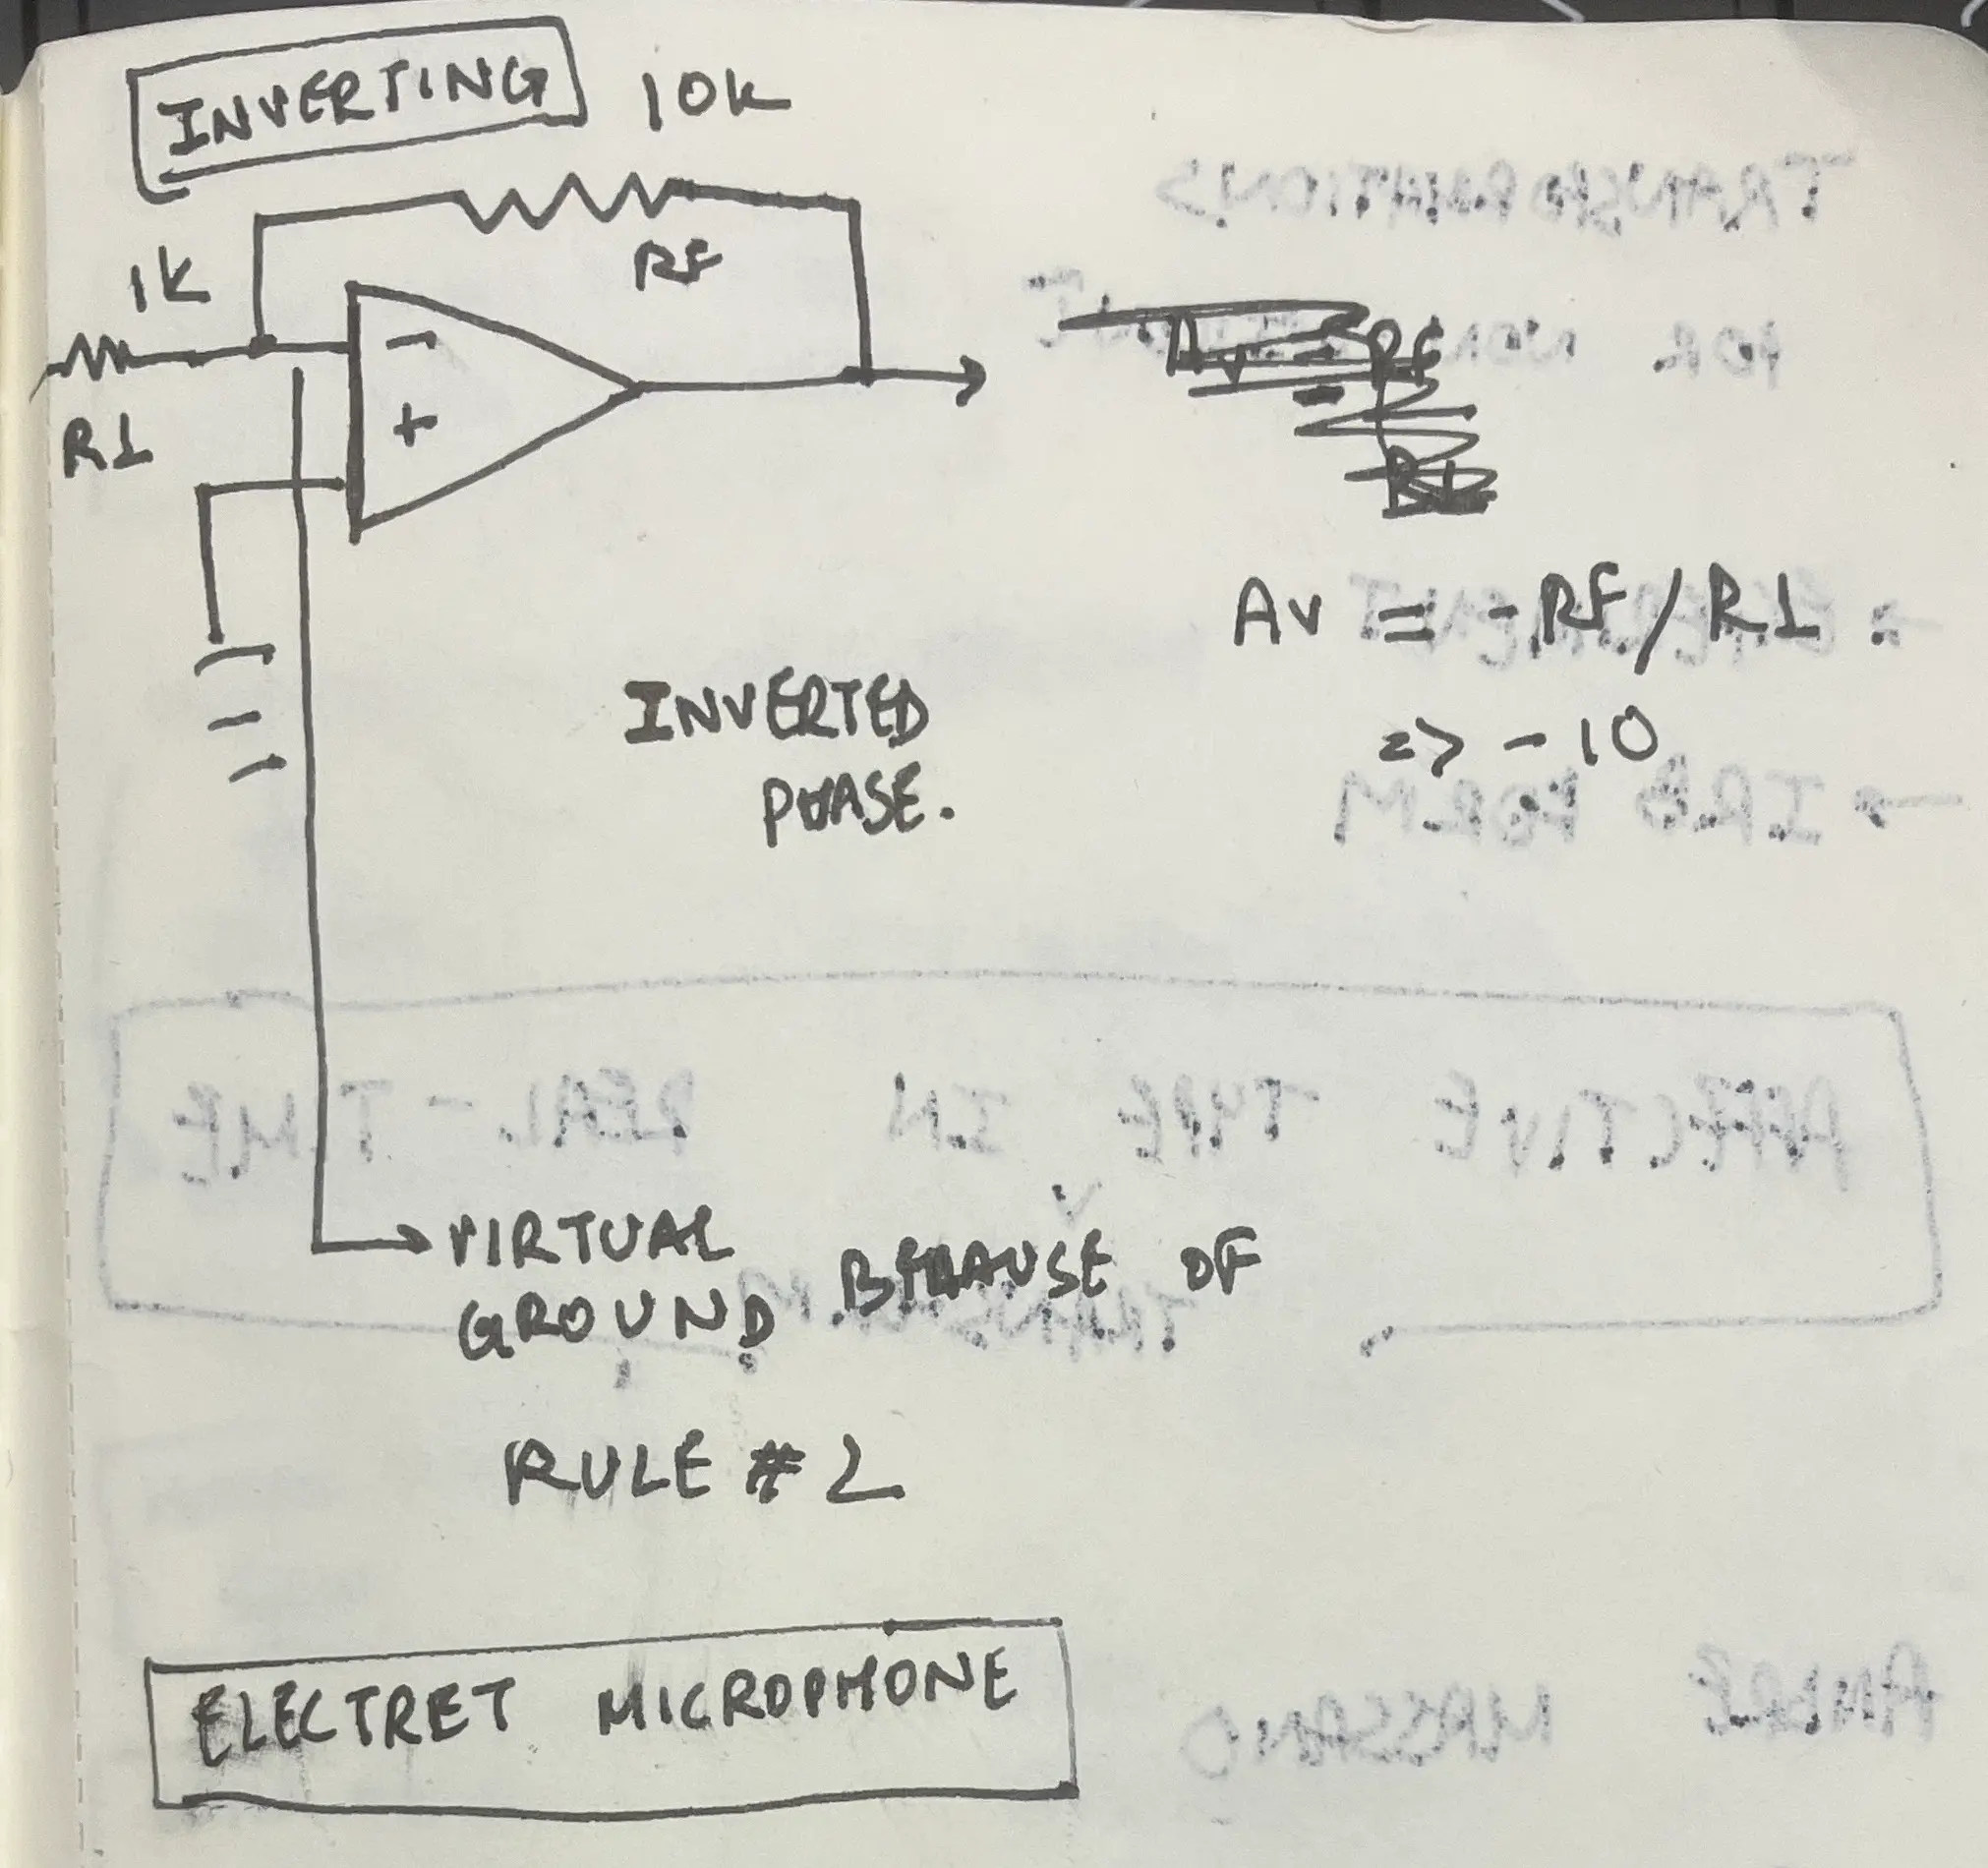 INVERTING
10K
RF
1K
R1
-
+
Av = RF
R1
Av = -RF/R1.
=> -10
INVERTED
PHASE.
VIRTUAL
GROUND BECAUSE OF
RULE #2
ELECTRET MICROPHONE